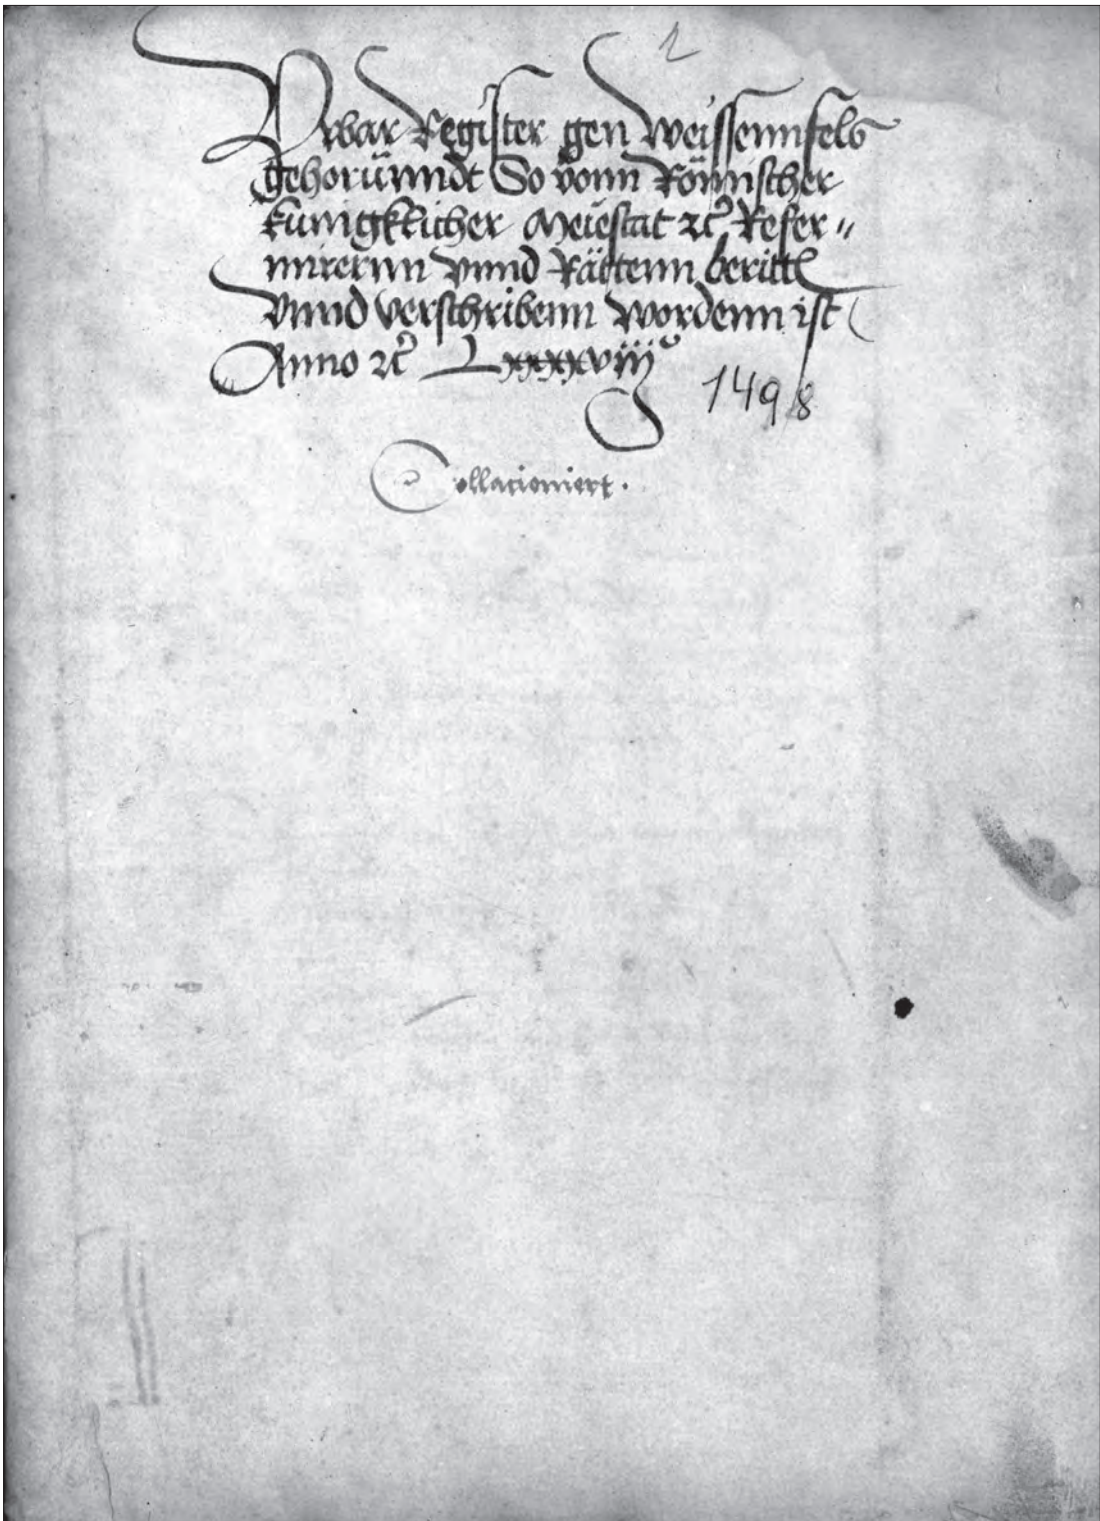 Vrbar Register gen Weissennfels
gehorünndt So vonn Römischer
kunigklicher Meiestat ꝛc Refer〃
mirernn vnnd Rättenn beritt
vnnd verschribenn wordenn ist
Anno ꝛc Lxxxxviijᵒ
1498
Collacioniert.